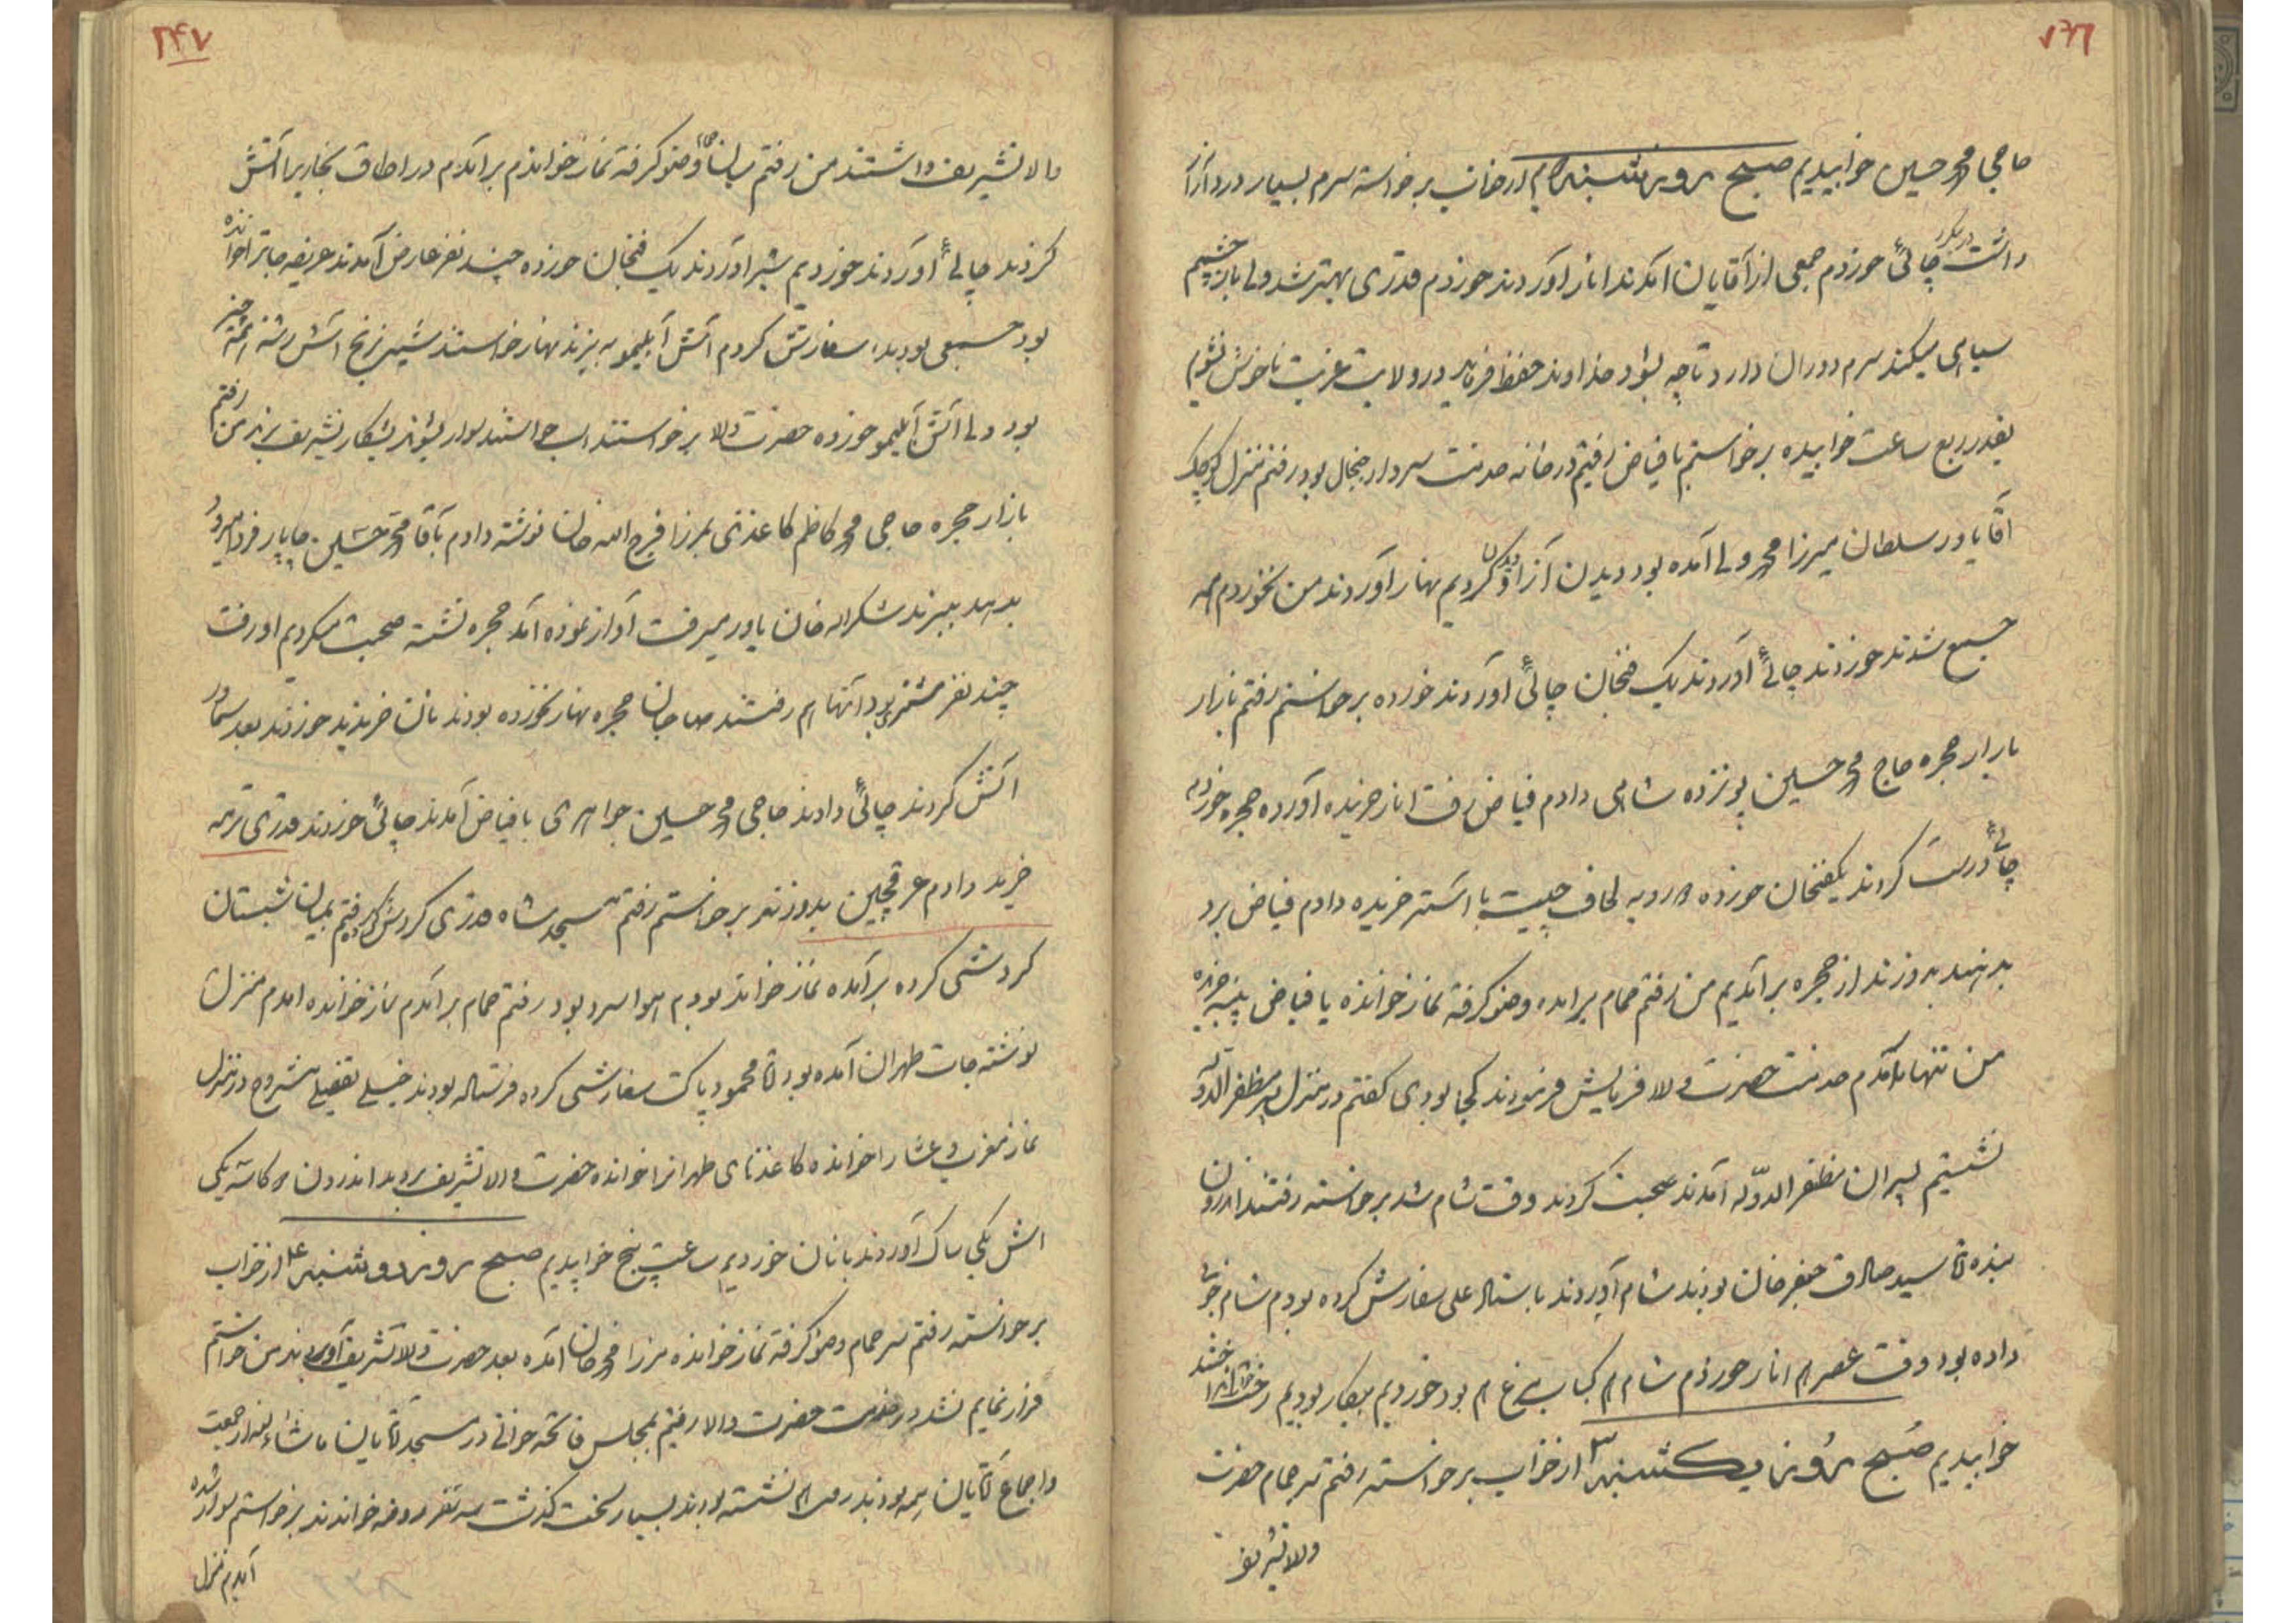 حاجی محمد حسین خوابیدیم صبح روز شنبه از خواب برخواسته سرم بسیار درد
داشت چائی خوردم جمعی از آقایان آمدند انار آوردند خوردم قدری بهتر شد ولی باز چشم
سیاهی میکند سرم دوران دارد تا چه بشود خداوند حفظ فرماید در ولایت غربت ناخوش نشوم
بقدر ربع ساعت خوابیده برخواستم با فیاض رفتیم در خانه خدمت سردار بود رفتم منزل کوچک
آقا یاور سلطان میرزا محمد ولی آمده بود دیدن کردیم نهار آوردند من نخوردم همه
جمع شدند خوردند چائی آوردند یک فنجان چائی آوردند خورده برخواستم رفتم بازار
بازار حجره حاج محمد حسین پونزده شاهی دادم فیاض رفت انار خریده آورده حجره خوردم
چائی درست کردند یکفنجان خورده رویه لحاف چیت با آستر خریده دادم فیاض برد
بدهند بدوزند از حجره برآمدیم من رفتم حمام برآمده وضو گرفته نماز خوانده با فیاض پنبه خریده
من تنها آمدم خدمت حضرت والا فرمایش فرمودند کجا بودی گفتم در منزل پسر مظفر الدوله
نشستیم پسران مظفر الدوله آمدند صحبت کردند وقت شام شد برخواسته رفتند اندرون
بنده آقا سید صادق جعفر خان بودند شام آوردند باستاد علی سفارش کرده بودم شام خوبی
داده بود وقت عصر هم انار خوردم شام هم کباب مرغ هم بود خوردیم بیکار بودیم
خوابیدیم صبح روز یکشنبه ۳ از خواب برخواسته رفتم سر حمام حضرت
والا تشریف
۲۴۷
والا تشریف داشتند من رفتم وضو گرفته نماز خواندم برآمدم در اطاق بخاریرا آتش
کردند چائی آوردند خوردیم شیر آوردند یک فنجان خورده چند نفر عارض آمدند عریضه جاترا خوانده
بود سفارش کردم آش آبلیمو به پزند نهار خواستند شیر برنج آش رشته
بود ولی آش آبلیمو خورده حضرت والا برخواستند اسب خواستند سوار بشوند بشکار تشریف بردند من رفتم
بازار حجره حاجی محمد کاظم کاغذی بمیرزا فرج الله خان نوشته دادم بآقا محمد حسین چاپار فردا میرود
بدهد ببرند شکرالله خان یاور میرفت آواز نموده آمد حجره نشسته صحبت میکردیم او رفت
چند نفر مشتری بود آنها هم رفتند صاحبان حجره نهار نخورده بودند نان خریدند خوردند بعد سماور
آتش کردند چائی دادند حاجی محمد حسین جواهری با فیاض آمدند چائی خوردند قدری ترمه
خرید دادم عرقچین بدوزند برخواستم رفتم مسجد شاه قدری گردش کرده رفتم بمیان شبستان
گردشی کرده برآمده نماز خوانده بودم هوا سرد بود رفتم حمام برآمدم نماز خوانده آمدم منزل
نوشته جات طهران آمده بود آقا محمود پاکت سفارشی کرده فرستاده بودند خیلی تفصیلی مشروح در منزل
نماز مغرب و عشا را خوانده کاغذهای طهرانرا خوانده حضرت والا تشریف بردند اندرون دو کاسه یکی
آش یکی ساک آوردند با نان خوردیم ساعت پنج خوابیدیم صبح روز دوشنبه ۴ از خواب
برخواسته رفتم سر حمام وضو گرفته نماز خوانده میرزا محمد خان آمده بعد حضرت والا تشریف آوردند من خواستم
فرار نمایم نشد در خدمت حضرت والا رفتیم بمجلس فاتحه خوانی در مسجد آقایان ماشاء الله از جمعیت
و اجماع آقایان همه بودند من هم نشسته بودند بسیار سخت گذشت سه نفر روضه خواندند برخواستم سوار شده
آمدیم منزل